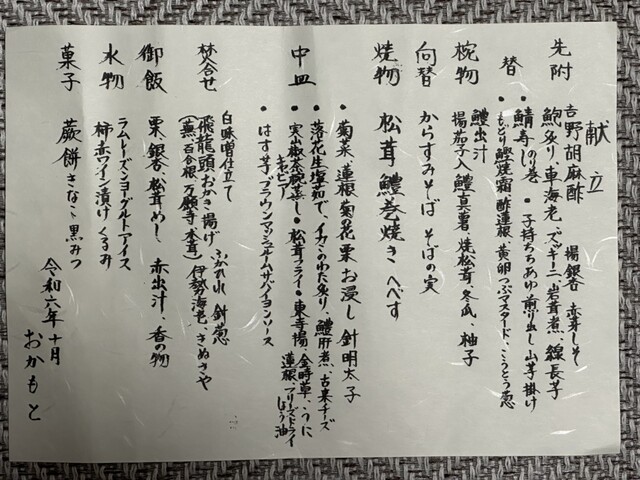 献立
先附
吉野胡麻酢 揚銀杏 赤芽しそ
鮑炙り、車海老、ズッキーニ 岩茸煮、線長芋
替
・鯖寿しの巻 ・子持ちあゆ煎り出し 山芋掛け
・もどり鰹焼霜 酢蓮根、黄卵、つぶマスタード、こうとう葱
椀物
鱧出汁
揚茄子入鱧真薯、焼松茸、冬瓜、柚子
向替
からすみそば そばの実
焼物
松茸鱧巻焼き へべす
中皿
・菊菜、蓮根、菊の花、栗 お浸し 針明太子
・落花生塩茹で、イカこのわた炙り、鱧肝煮、古来チーズ
・実山椒茶碗蒸し キャビア ・松茸フライ ・東寺揚 金時草・うに 蓮根、フリーズドライしょう油
・はす芋、ブラウンマッシュルーム サバイヨンソース
焚合せ
白味噌仕立て ふかれ 針葱
飛龍頭 おかき揚げ
(蕪 百合根 万願寺 本春) 伊勢海老、きぬさや
御飯
栗、銀杏、松茸めし、赤出汁、香の物
水物
ラムレーズンヨーグルトアイス
柿赤ワイン漬け くるみ
菓子
蕨餅 きなこ 黒みつ
令和六年十月
おかもと